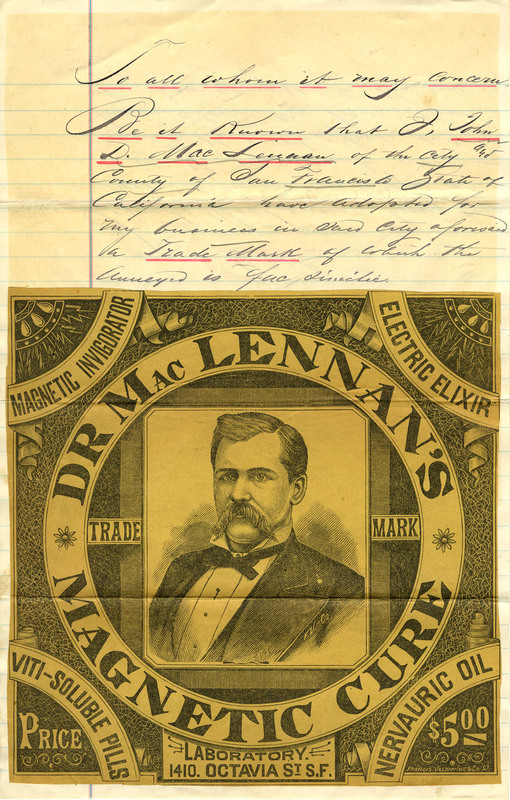 To all whom it may concern.
Be it Known that I, John
D. Mac Lennan of the city and
County of San Francisco State of
California have adopted for
my business in said city aforesaid
a Trade Mark of which the
annexed is fac, similie.
MAGNETIC INVIGORATOR
ELECTRIC ELIXIR
DR MAC LENNAN'S
TRADE MARK
MAGNETIC CURE
VITI-SOLUBLE PILLS
NERVAURIC OIL
PRICE
$5.00
LABORATORY.
1410. OCTAVIA ST S.F.
FRANCIS, VALENTINE & CO. SF.